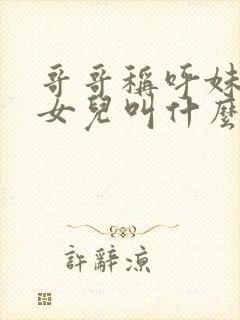 哥哥稱呼妹
女兒叫什麼
許辭涼